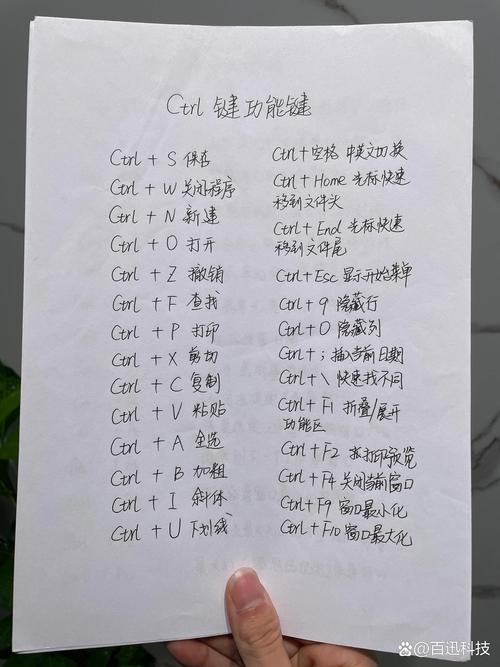 Ctrl 键功能键
Ctrl + S 保存
Ctrl + W 关闭程序
Ctrl + N 新建
Ctrl + O 打开
Ctrl + Z 撤销
Ctrl + F 查找
Ctrl + P 打印
Ctrl + X 剪切
Ctrl + C 复制
Ctrl + V 粘贴
Ctrl + A 全选
Ctrl + B 加粗
Ctrl + I 斜体
Ctrl + U 下划线
Ctrl + 空格 中英文切换
Ctrl + Home 光标快速
移到文件头
Ctrl + End 光标快速
移到文件尾
Ctrl + Esc 显示开始菜单
Ctrl + 9 隐藏行
Ctrl + 0 隐藏列
Ctrl + ; 插当前日期
Ctrl + \ 快速找不同
Ctrl + F1 折叠/展开
功能区
Ctrl + F2 打印预览
Ctrl + F4 关闭当前窗口
Ctrl + F9 窗口最小化
Ctrl + F10 窗口最大化
百迅科技